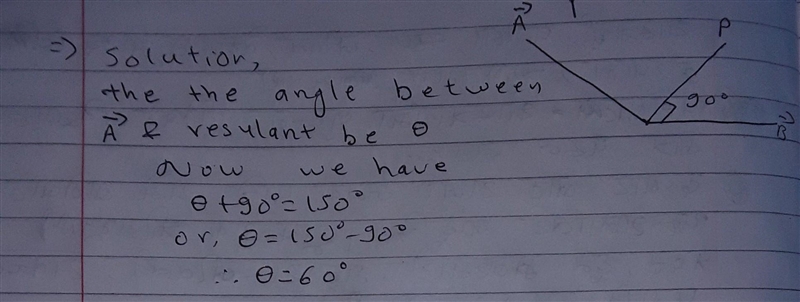 => Solution,
the the angle between
A→ & resulant be θ
Now we have
θ + 90° = 150°
or, θ = 150° - 90°
∴ θ = 60°
A→
P
90°
B→